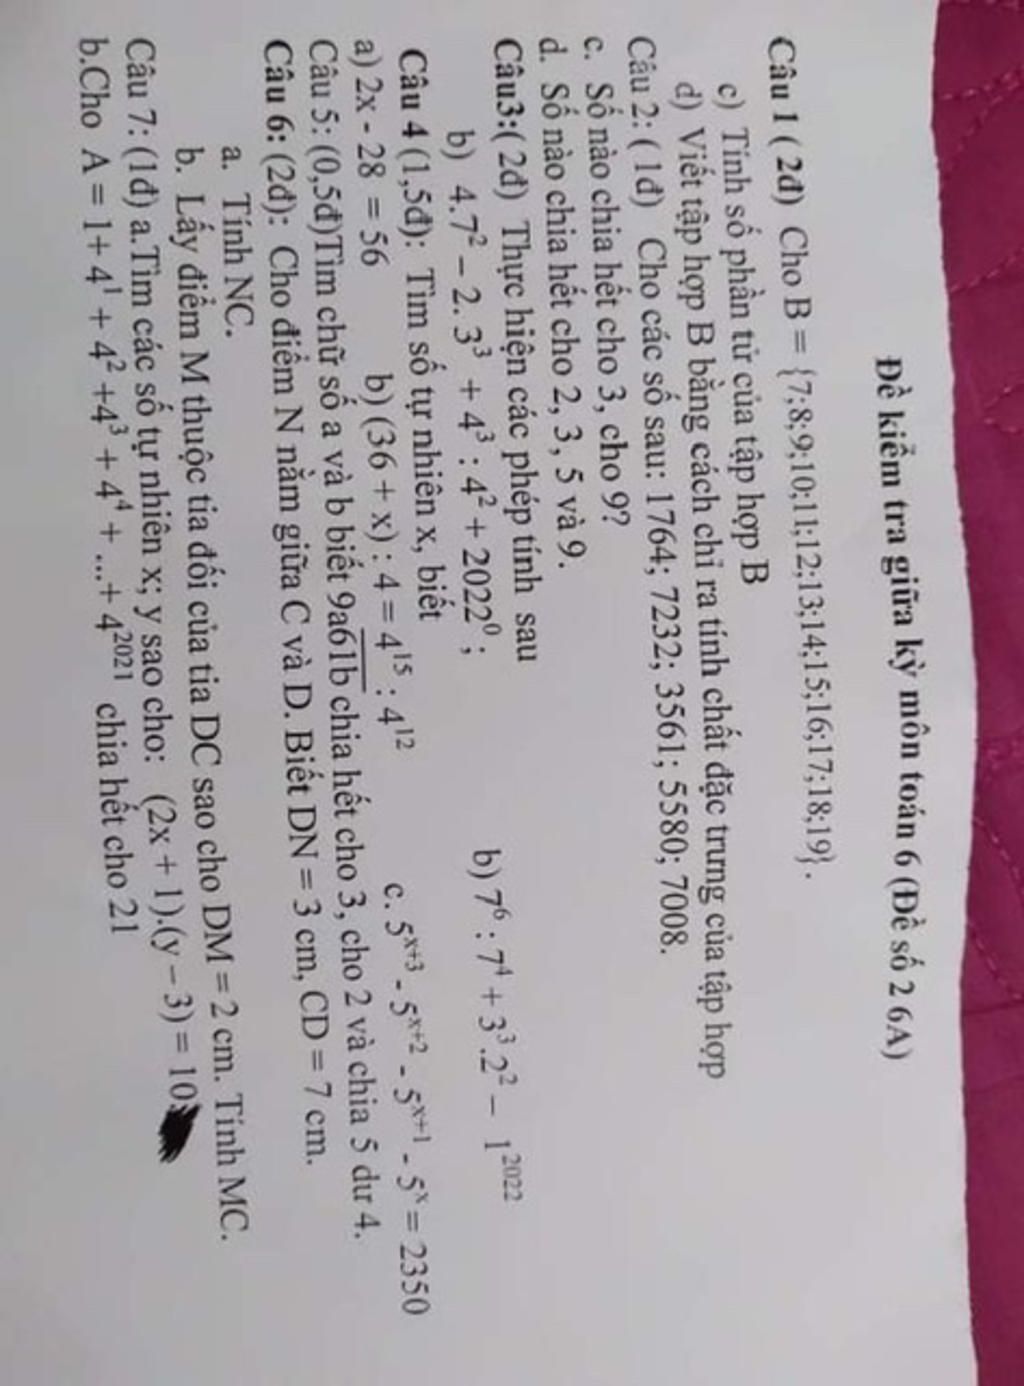 Đề kiểm tra giữa kỳ môn toán 6 (Đề số 2 6A)
Câu 1 ( 2đ) Cho B = {7;8;9;10;11;12;13;14;15;16;17;18;19}.
c) Tính số phần tử của tập hợp B
d) Viết tập hợp B bằng cách chỉ ra tính chất đặc trưng của tập hợp
Câu 2: ( 1đ) Cho các số sau: 1764; 7232; 3561; 5580; 7008.
c. Số nào chia hết cho 3, cho 9?
d. Số nào chia hết cho 2, 3, 5 và 9.
Câu3:( 2đ) Thực hiện các phép tính sau
b) 4.7² – 2. 3³ + 4³ : 4² + 2022⁰ ; b) 7⁶ : 7⁴ + 3³.2² – 1²⁰²²
Câu 4 (1,5đ): Tìm số tự nhiên x, biết
a) 2x - 28 = 56 b) (36 + x) : 4 = 4¹⁵ : 4¹² c. 5ˣ⁺³ - 5ˣ⁺² - 5ˣ⁺¹ - 5ˣ = 2350
Câu 5: (0,5đ)Tìm chữ số a và b biết 9a61b chia hết cho 3, cho 2 và chia 5 dư 4.
Câu 6: (2đ): Cho điểm N nằm giữa C và D. Biết DN = 3 cm, CD = 7 cm.
a. Tính NC.
b. Lấy điểm M thuộc tia đối của tia DC sao cho DM = 2 cm. Tính MC.
Câu 7: (1đ) a.Tìm các số tự nhiên x; y sao cho: (2x + 1).(y – 3) = 10
b.Cho A = 1+ 4¹ + 4² +4³ + 4⁴ + ...+ 4²⁰²¹ chia hết cho 21